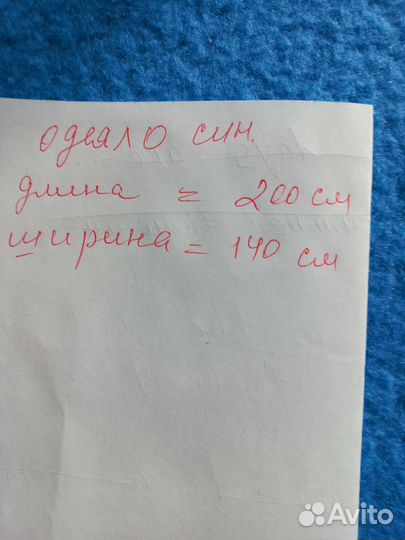 одеяло син.
длина = 200 см
ширина = 140 см
Avito